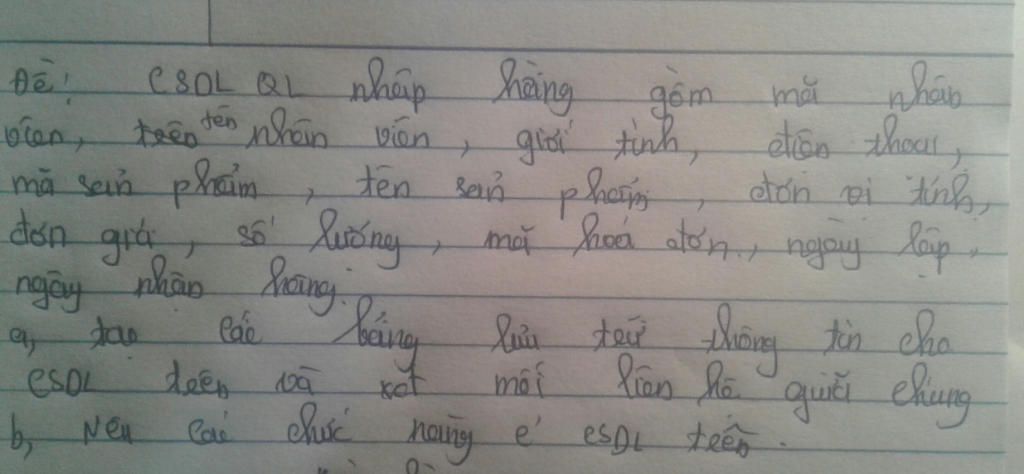 Đề: CSDL QL nhập hàng gồm mã nhân
viên, tên nhân viên, giới tính, điện thoại,
mã sản phẩm, tên sản phẩm, đơn vị tính,
đơn giá, số lượng, mã hoá đơn, ngày lập,
ngày nhận hàng.
a, tạo các bảng lưu trữ thông tin cho
CSDL trên và xét mối liên hệ giữa chúng
b, Nêu các chức năng CSDL trên.